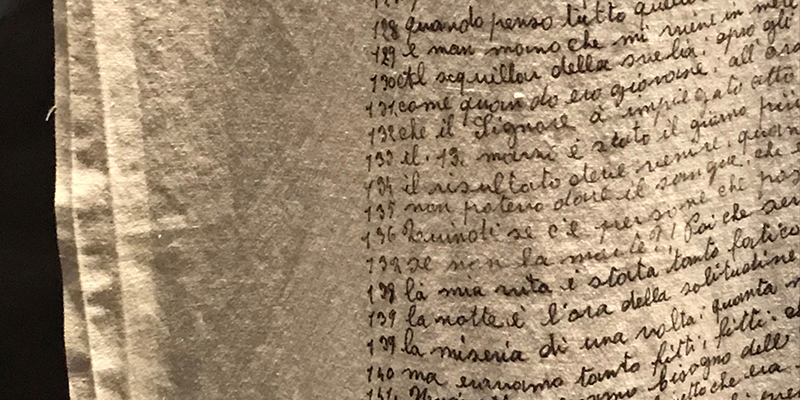 128 quando penso tutto
129 e man mano che mi viene in
130 Al squillar della sveglia, apro gli
131 come quando ero giovane, all'
132 che il Signore à impiegato
133 il. 13. marzi è stato il giorno più
134 il risultato deve venire, quan
135 non potevo dare il sangue, che
136 se c'è persone che
139 se non la morte?! Poi che
138 la mia vita è stata tanto fatico
139 la notte è l'ora della solitudine
139 la miseria di una volta, quanta
140 ma eravamo tanto fitti, fitti,
141 bisogno dell
che era